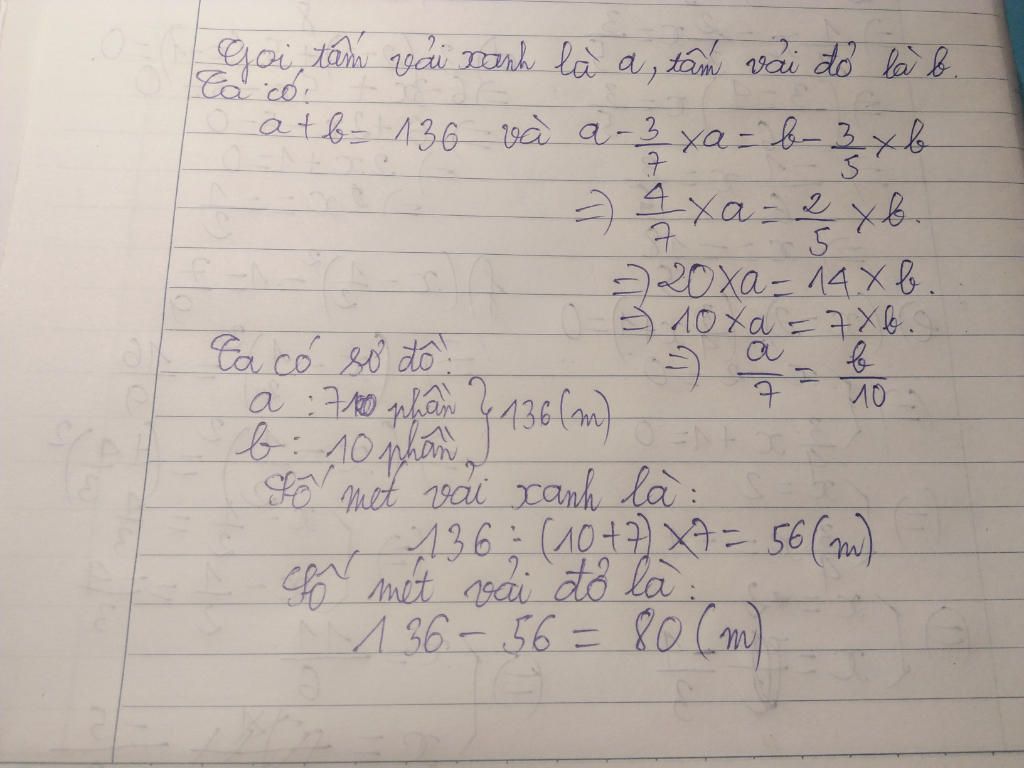 Gọi tấm vải xanh là a, tấm vải đỏ là b.
Ta có:
a + b = 136 và a - 3/7 × a = b - 3/5 × b
=> 4/7 × a = 2/5 × b.
=> 20 × a = 14 × b.
=> 10 × a = 7 × b.
=> a/7 = b/10
Ta có sơ đồ:
a : 7 phần } 136 (m)
b : 10 phần
Số mét vải xanh là:
136 : (10+7) × 7 = 56 (m)
Số mét vải đỏ là:
136 - 56 = 80 (m)